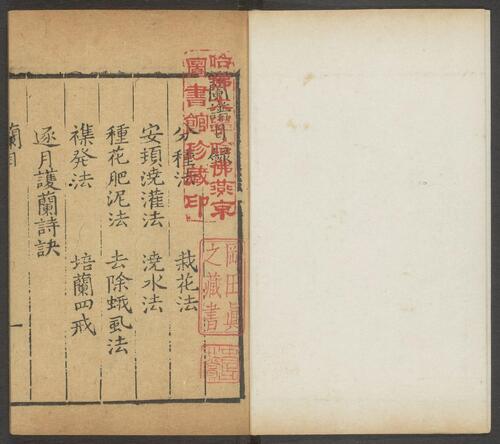 哈佛大學哈佛燕京
圖書館珍藏印
蘭譜目錄
岡田眞
之藏書
分種法　栽花法
安頓澆灌法　澆水法
種花肥泥法　去除蛾虱法
襍發法　培蘭四戒
逐月護蘭詩訣
蘭目　一